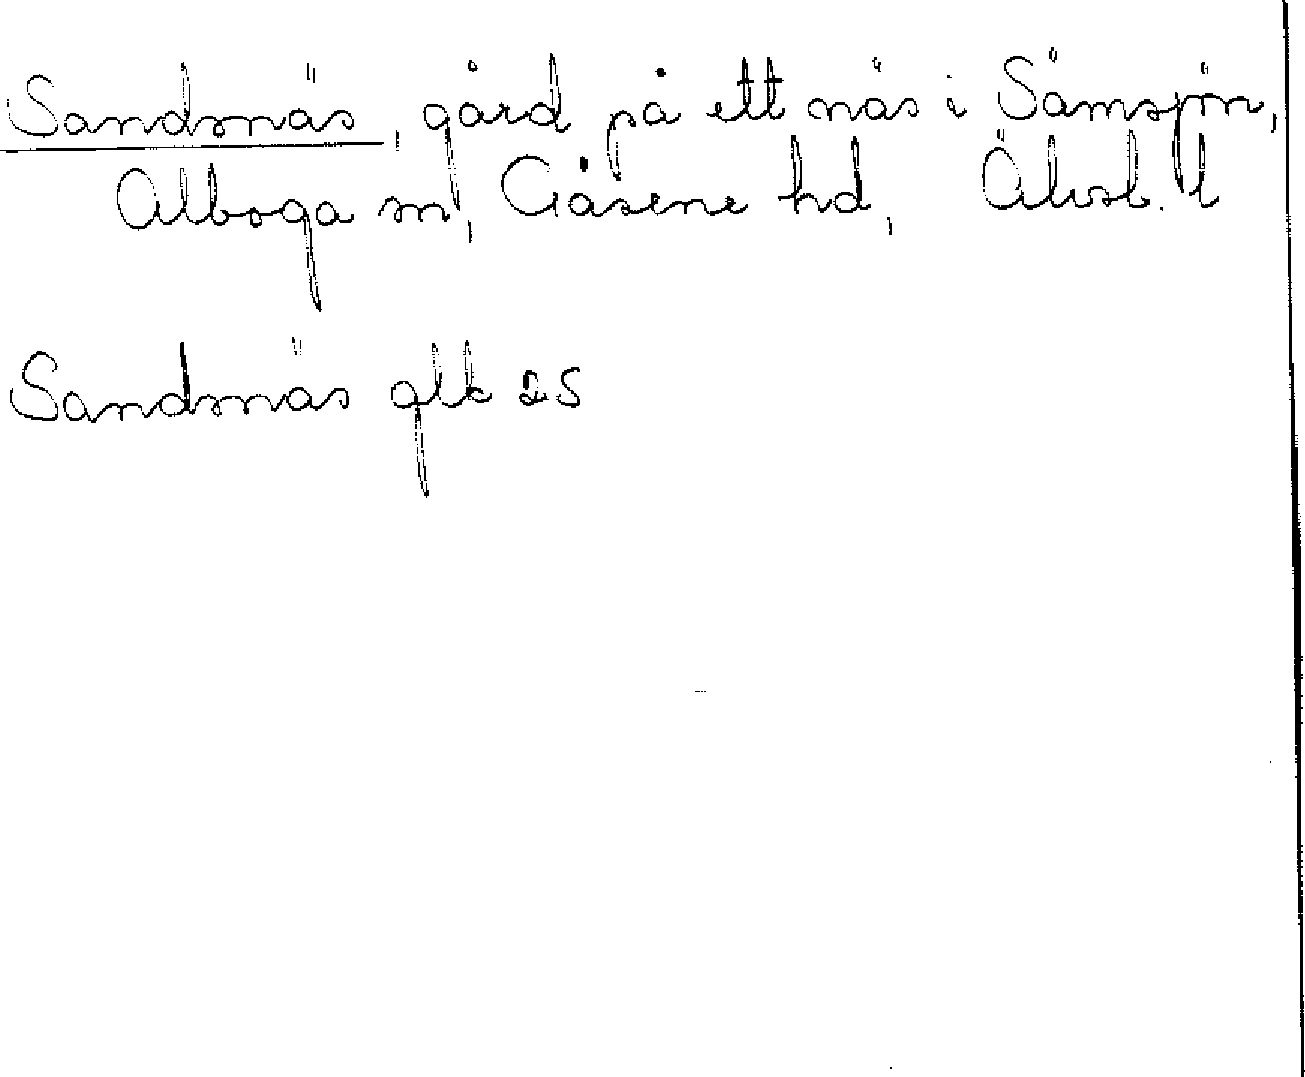 Sandsnäs, gård på ett näs i Sämsjön,
Alboga sn, Gäsene hd, Älvsb. l
Sandsnäs glk 25